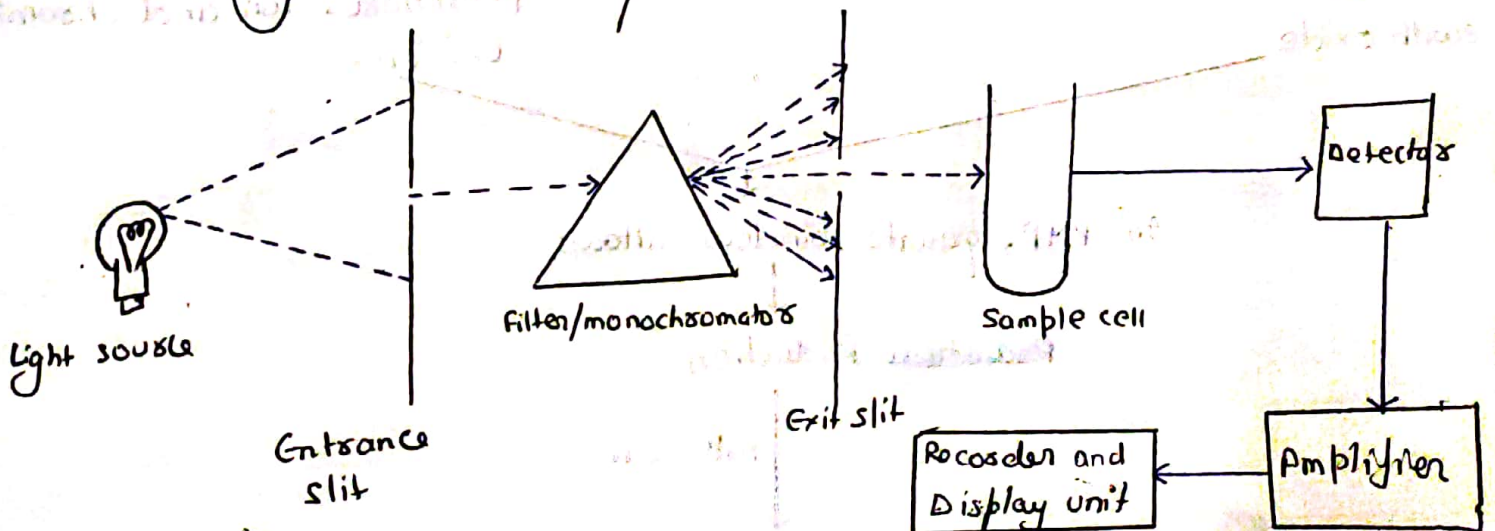 Light source
Entrance
slit
Filter/monochromator
Exit slit
Sample cell
Detector
Amplifier
Recorder and
Display unit